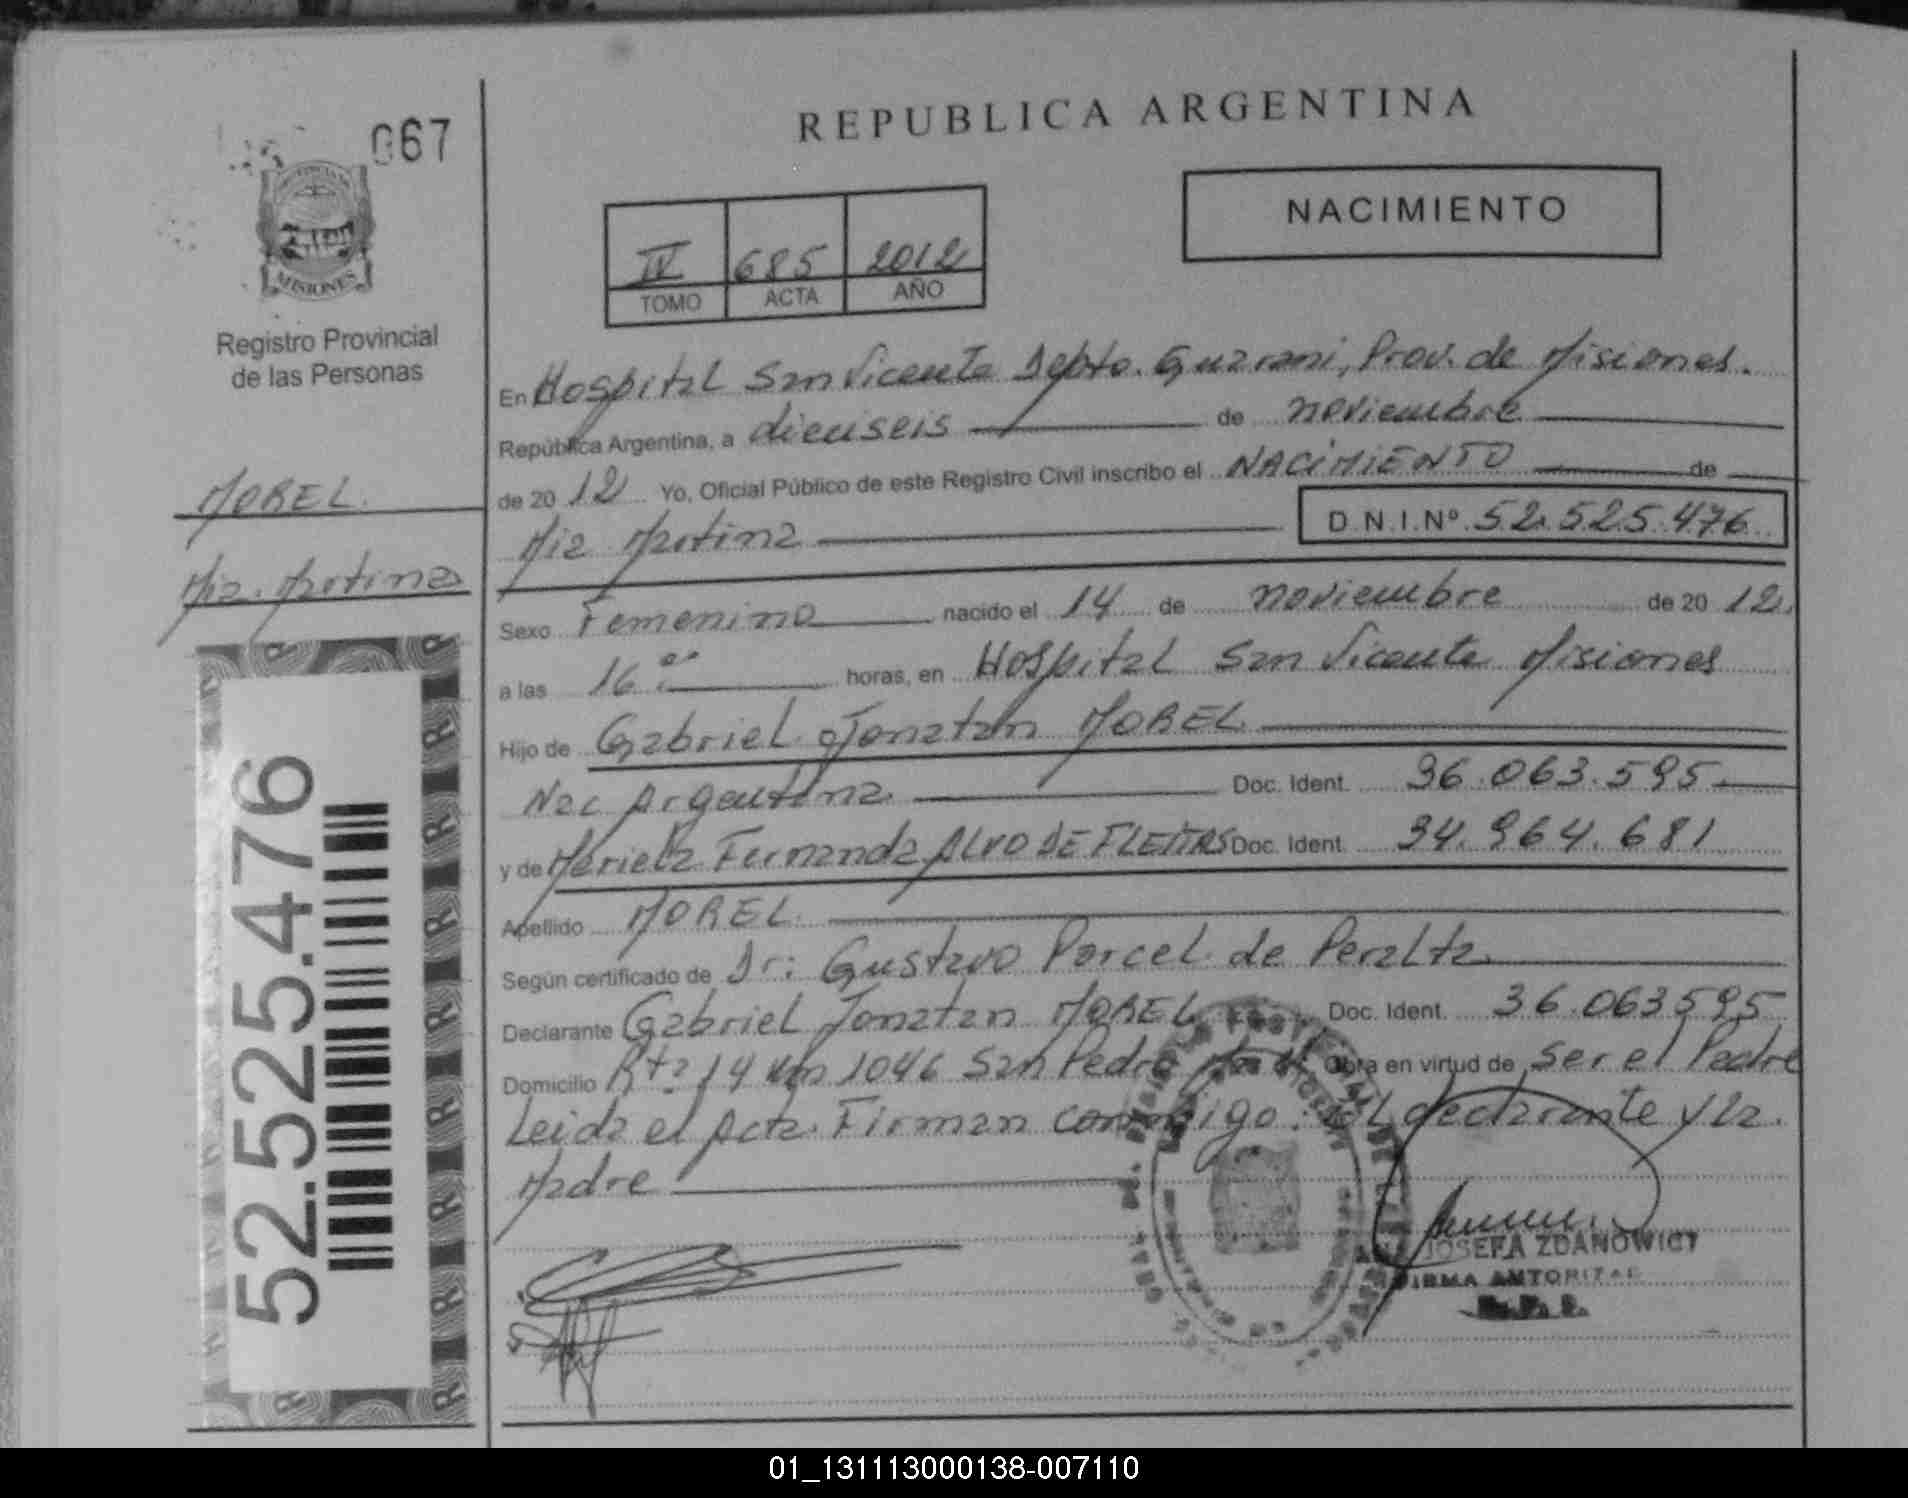 067
MISIONES
Registro Provincial
de las Personas
MOREL.
Mia. Martina
52.525.476
REPUBLICA ARGENTINA
NACIMIENTO
IV 685 2012
TOMO ACTA AÑO
En Hospital San Vicente Depto. Guarani, Prov. de Misiones.
República Argentina, a dieciseis de noviembre
de 20 12 Yo, Oficial Público de este Registro Civil inscribo el NACIMIENTO de
Mia Martina D.N.I.Nº 52.525.476
Sexo Femenino nacido el 14 de noviembre de 20 12.
a las 16 horas, en Hospital San Vicente Misiones
Hijo de Gabriel Jonatan MOREL
Nac Argentina Doc. Ident. 36.063.595
y de Mariela Fernanda ALVO DE FLEITAS Doc. Ident. 34.964.681
Apellido MOREL
Según certificado de Dr: Gustavo Porcel de Peralta
Declarante Gabriel Jonatan MOREL Doc. Ident. 36.063595
Domicilio Rta 14 km 1046 San Pedro Obra en virtud de ser el Padre
Leida el Acta. Firman conmigo: el declarante y la.
Madre
JOSEFA ZDANOWICT
FIRMA AUTORIZAD
01_131113000138-007110